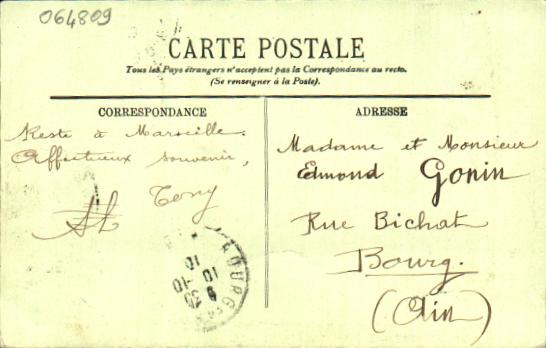 064809
CARTE POSTALE
Tous les Pays étrangers n'acceptent pas la Correspondance au recto.
(Se renseigner à la Poste).
CORRESPONDANCE
Reste à Marseille.
Affectueux souvenir,
Tony
ADRESSE
Madame et Monsieur
Edmond Gonin
Rue Bichat
Bourg.
(Ain)
BOURG